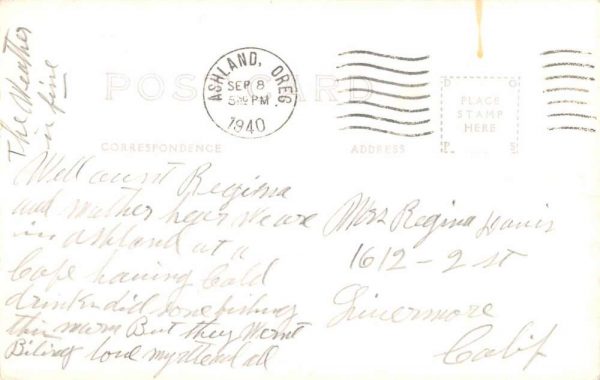 The Weather
is fine
POST CARD
ASHLAND, OREG.
SEP 8
5 PM
1940
PLACE
STAMP
HERE
CORRESPONDENCE
ADDRESS
Well aunt Regina
and mother hear we are
in ashland at a
Cafe having Cold
drinks did some fishing
this morn But they Wernt
Biting love all
Mrs Regina Davis
1612 - 2 st
Livermore
Calif